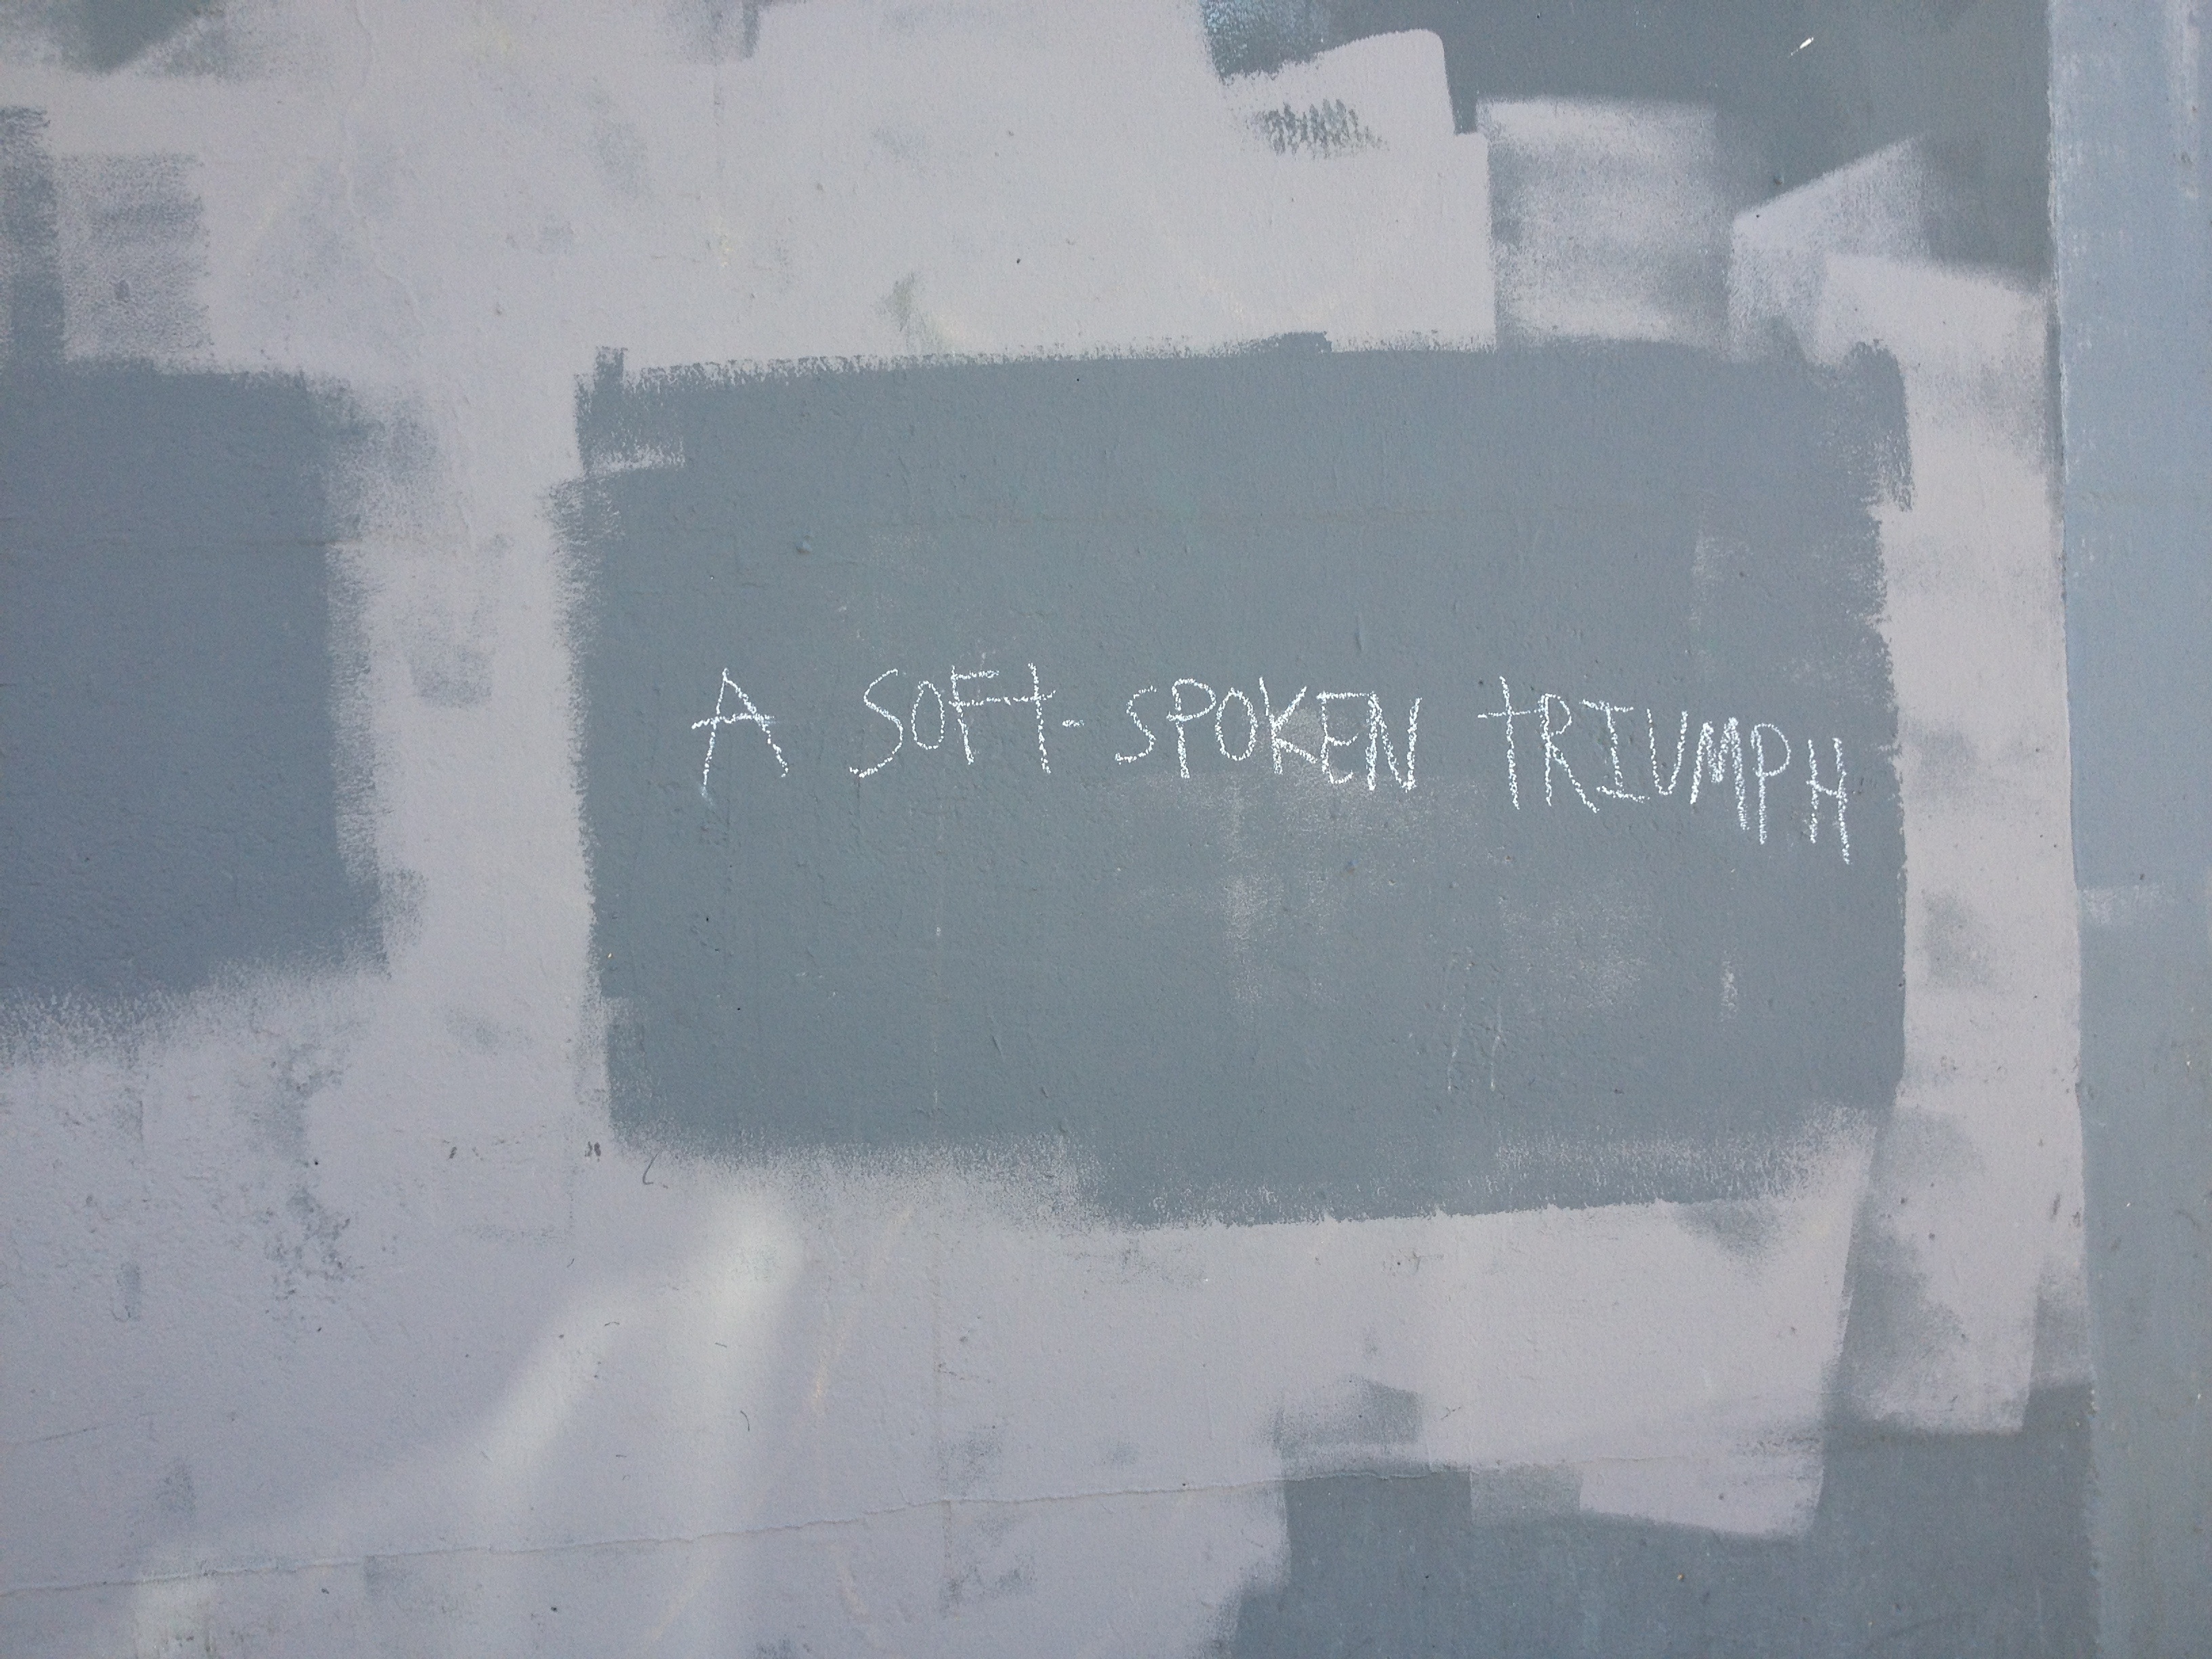 A SOFt-SPOKEN tRIUMPH